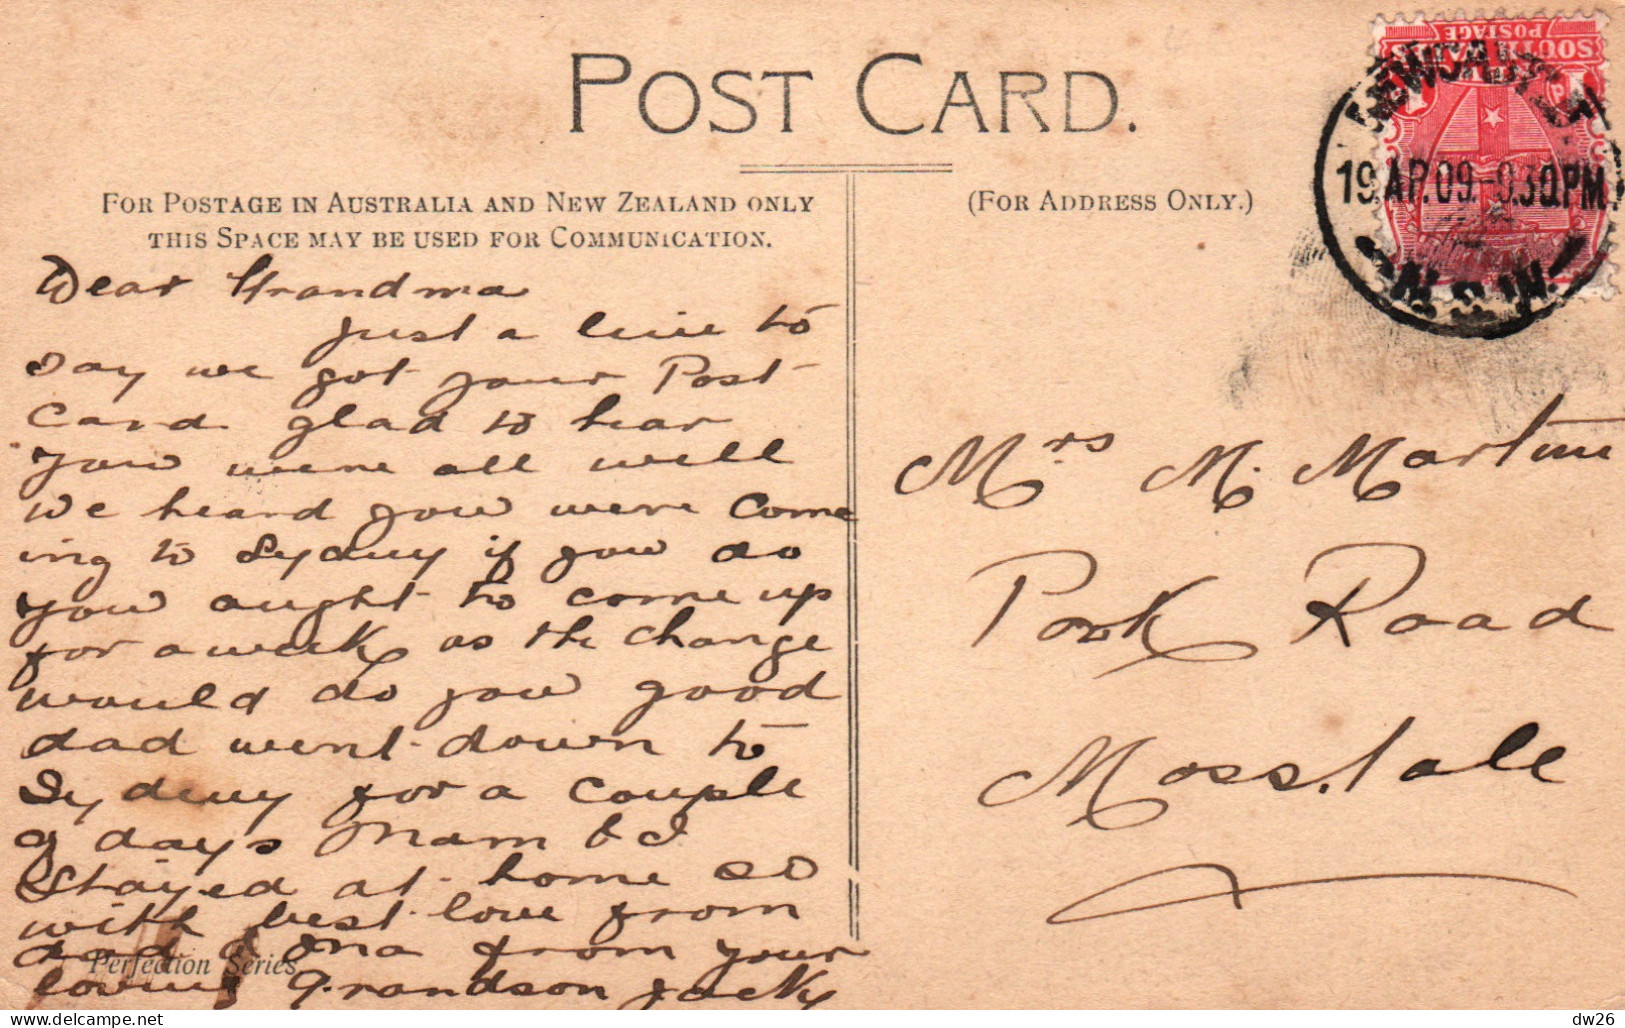 POST CARD.
FOR POSTAGE IN AUSTRALIA AND NEW ZEALAND ONLY
THIS SPACE MAY BE USED FOR COMMUNICATION.
(FOR ADDRESS ONLY.)
SOUTH WALES
POSTAGE
NEWCASTLE
19.AP.09.-9.30PM
N.S.W.
Dear Grandma
Just a line to
say we got your Post
Card glad to hear
you were all well
we heard you were come
ing to Sydney if you do
you aught to come up
for a week as the change
would do you good
dad went down to
Sydney for a couple
of days Mam & I
stayed at home so
with best love from
dad & Ma from your
loving Grandson Jack
Perfection Series.
Mrs M. Martin
Park Road
Moss. Vale
dw26